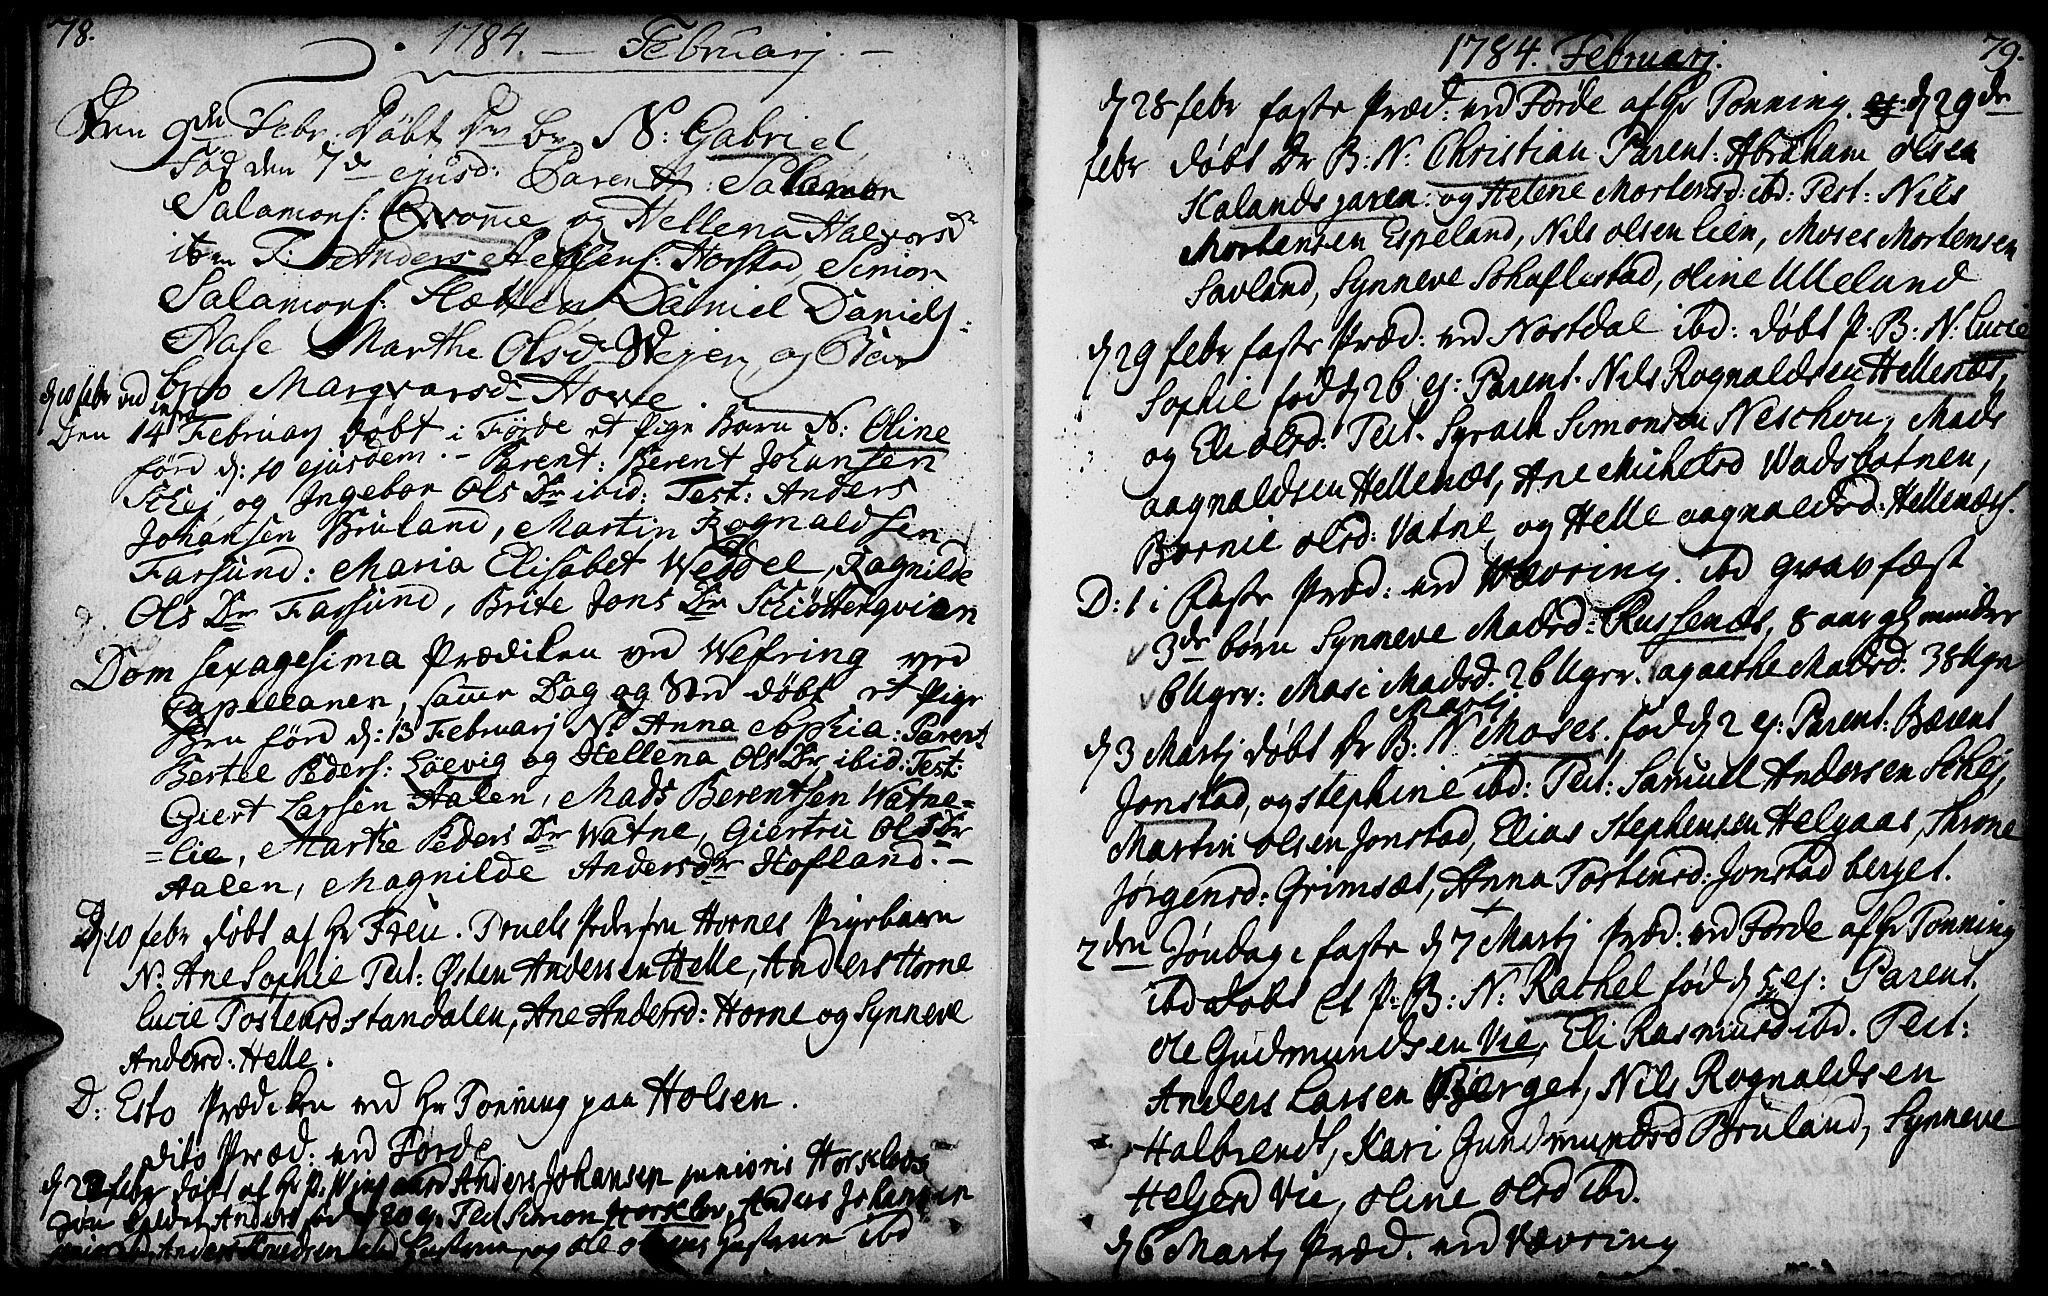 78.
1784. — Februarj. —
Den 9de Febr. Døbt Dr. Br. N: Gabriel
Fød den 7de ejusd: Parent: Salamon
Salamons: og Hellena Halvorsdr
T: Anders Horstad, Simon
Salamons: Slætten Daniel Daniels:
Nase Marthe Olsdr Wejen og
Margvarsdr Horne.
d 10 febr ved
Den 14 Februarj døbt i Förde et Pige Barn N: Oline
förd d: 10 ejusdem. — Parent: Berent Johansen
Schej og Ingebor Ols Dr ibid: Test: Anders
Johansen Bruland, Martin Rognaldsen
Farsund: Maria Elisabet Weddel, Ragnilde
Ols Dr Farsund, Brite Jons Dr
Dom sexagesima Prædiken ved Wefring ved
Capellanen, samme Dag og Sted døbt et Pige
Brn förd d: 13 Februarj N: Anna Sophia: Parent
Bertel Peders: Löevig og Hellena Ols Dr ibid: Test:
Giert Larsen Aalen, Mads Berentsen Watne=
=lie, Marthe Peders Dr Watne, Giertru Ols Dr
Aalen, Magnilde Andersdr Hofland. —
D 10 febr døbt af Hr Freu. Truels Pedersen Hornes Pigebarn
N: Ane Sophie Test: Østen Anderssen Helle, Anders Horne
Lucie Tostensd Standalen, Ane Andersd: Horne og Synneve
Andersd: Helle.
D: Esto Prædiken ved Hr Tonning paa Holsen.
dito Præd: ved Førde
d 22 febr døbt af Hr P. Wingaard Anders Johansen junioris Horsklovs
Søn Anders fød d 20 ej. Test Simon Horsklov, Anders Johansen
Anders Knudsen og Ole ibd
1784. Februarj.
79.
d 28 febr faste Præd: ved Førde af Hr Tonning. d 29de
febr døbt Dr B: N: Christian Parent: Abraham Olsen
Halandsjaren: og Helene Mortensd: ibd: Test: Nils
Mortensen Espeland, Nils Olsen Lien, Moses Mortensen
Savland, Synneve Schaflestad, Oline Ulleland
d 29 febr faste Præd: ved Nostdal ibd: døbt P. B: N: Lucie
Sophie fød d 26 ej: Parent. Nils Rognaldsen Hellenæs,
og Eli Olsd: Test. Syrach Simonsen Neschou, Mads
aagnaldsen Hellenæs, Ane Michelsd Wadsbotnen,
Bornie Olsd: Vatne, og Helle aagnaldsd: Hellenæs.
D: 1 i Faste Præd: ved Wævring. ibd gravfæst
3de børn Synneve Madsd: Russenæs, 8 aar mindre
6 Ugrr: Masi Madsd. 26 Ugrr. agaathe Madsd: 38 Ugr
d 3 Martj døbt Dr B: N Moses. fød d 2 ej: Martj Parent: Bærent
Jonstad, og Stephine ibd: Test: Samuel Andersen Schej,
Martin Olsen Jonstad, Elias Stephensen Helgaas, Throne
Jørgensd: Grimsæt, Anna Tostensd: Jonstad berget.
2den Søndag i faste d 7 Martj Præd: ved Førde af Hr Tonning
ibd døbt et P: B: N: Rachel fød d 5 ej: Parent.
Ole Gudmundsen Vie, Eli Rasmusd ibd. Test:
Anders Larsen Bierget, Nils Rognaldsen
Halbrendt, Kari Gundmundsd Bruland, Synneve
Helgesd Vie, Oline Olsd ibd.
d 6 Martj Præd. ved Wævring